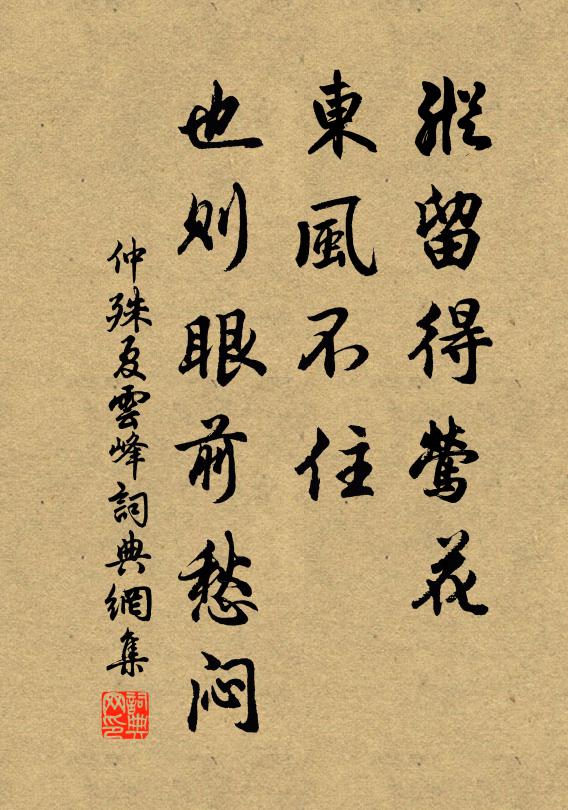 縱留得鶯花
東風不住
也则眼前愁闷
仲殊夏雲峰詞典網集
詞典网印